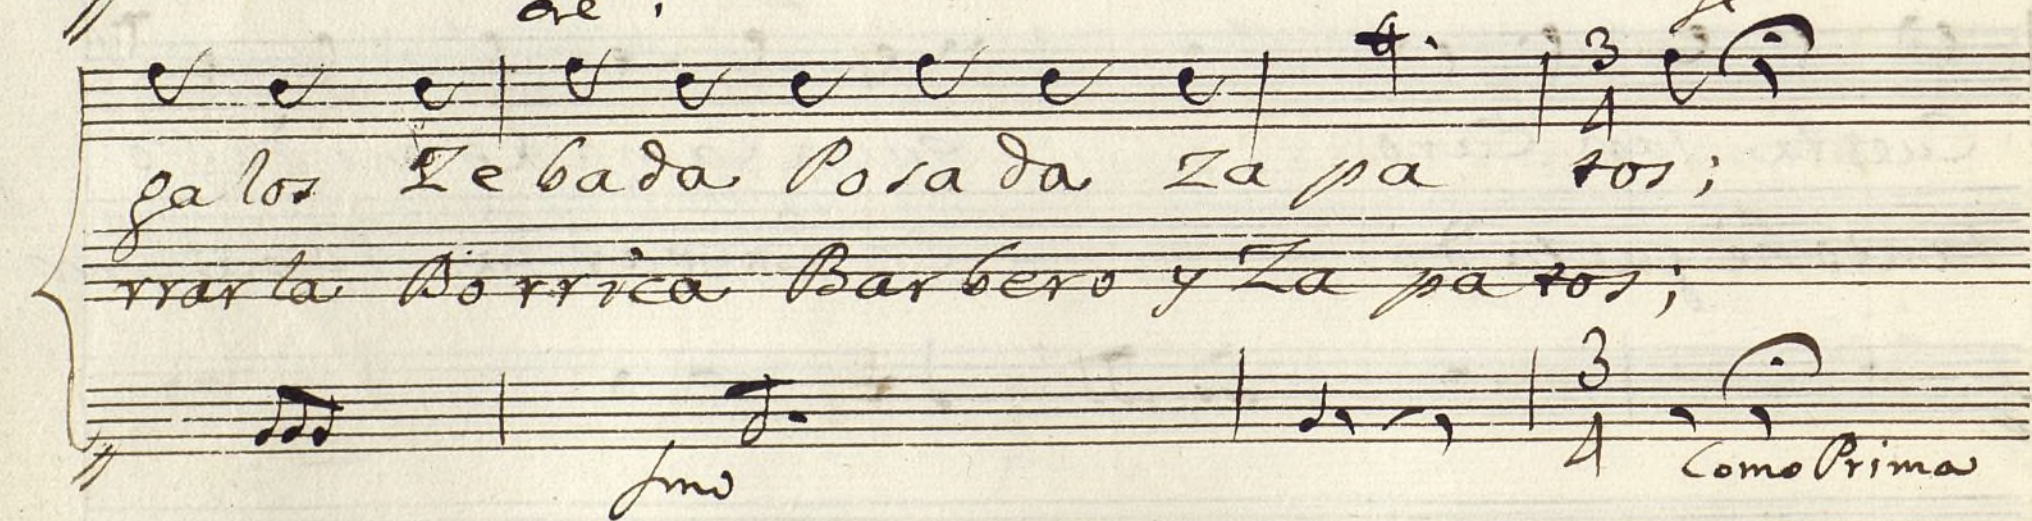 3
4
galos Zebada Posada Zapa tos;
rrar la Borrica Barbero y Zapatos;
3
4
fmo
Como Prima